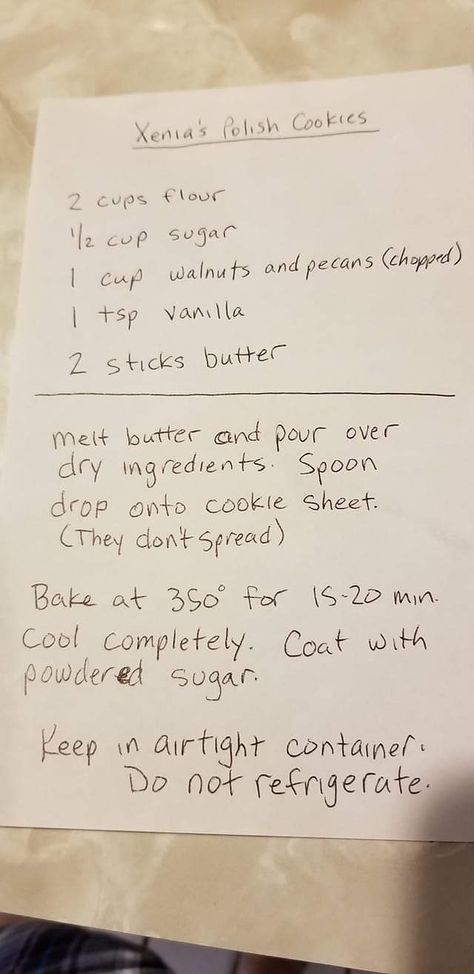 Xenia's Polish Cookies
2 cups flour
1/2 cup sugar
1 cup walnuts and pecans (chopped)
1 tsp vanilla
2 sticks butter
melt butter and pour over
dry ingredients. Spoon
drop onto cookie sheet.
(They don't spread)
Bake at 350° for 15-20 min.
Cool completely. Coat with
powdered sugar.
Keep in airtight container.
Do not refrigerate.